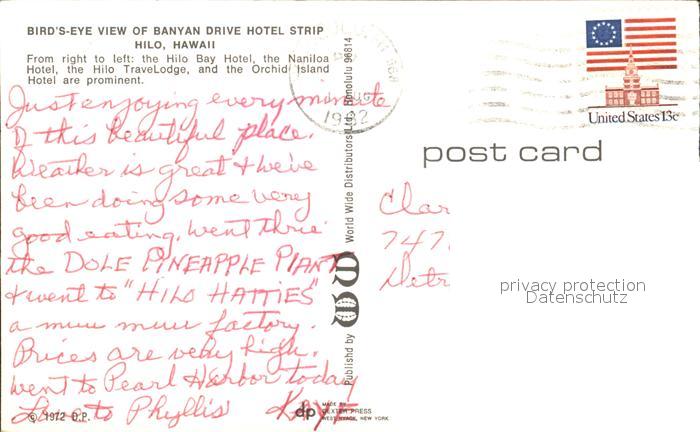 BIRD'S-EYE VIEW OF BANYAN DRIVE HOTEL STRIP
HILO, HAWAII
From right to left: the Hilo Bay Hotel, the Naniloa
Hotel, the Hilo TraveLodge, and the Orchid Island
Hotel are prominent.
Just enjoying every minute
of this beautiful place.
Weather is great & we've
been doing some very
good eating. Went thru
the DOLE PINEAPPLE PLANT
& went to "HILO HATTIES"
a muu muu factory.
Prices are very high.
Went to Pearl Harbor today
Love to Phyllis KAYE
© 1972 D.P.
Publishd by WW World Wide Distributors Ltd. Honolulu 96814
dp MADE BY
DEXTER PRESS
WEST NYACK, NEW YORK
1982
United States 13c
post card
Clar
747
Detr
privacy protection
Datenschutz